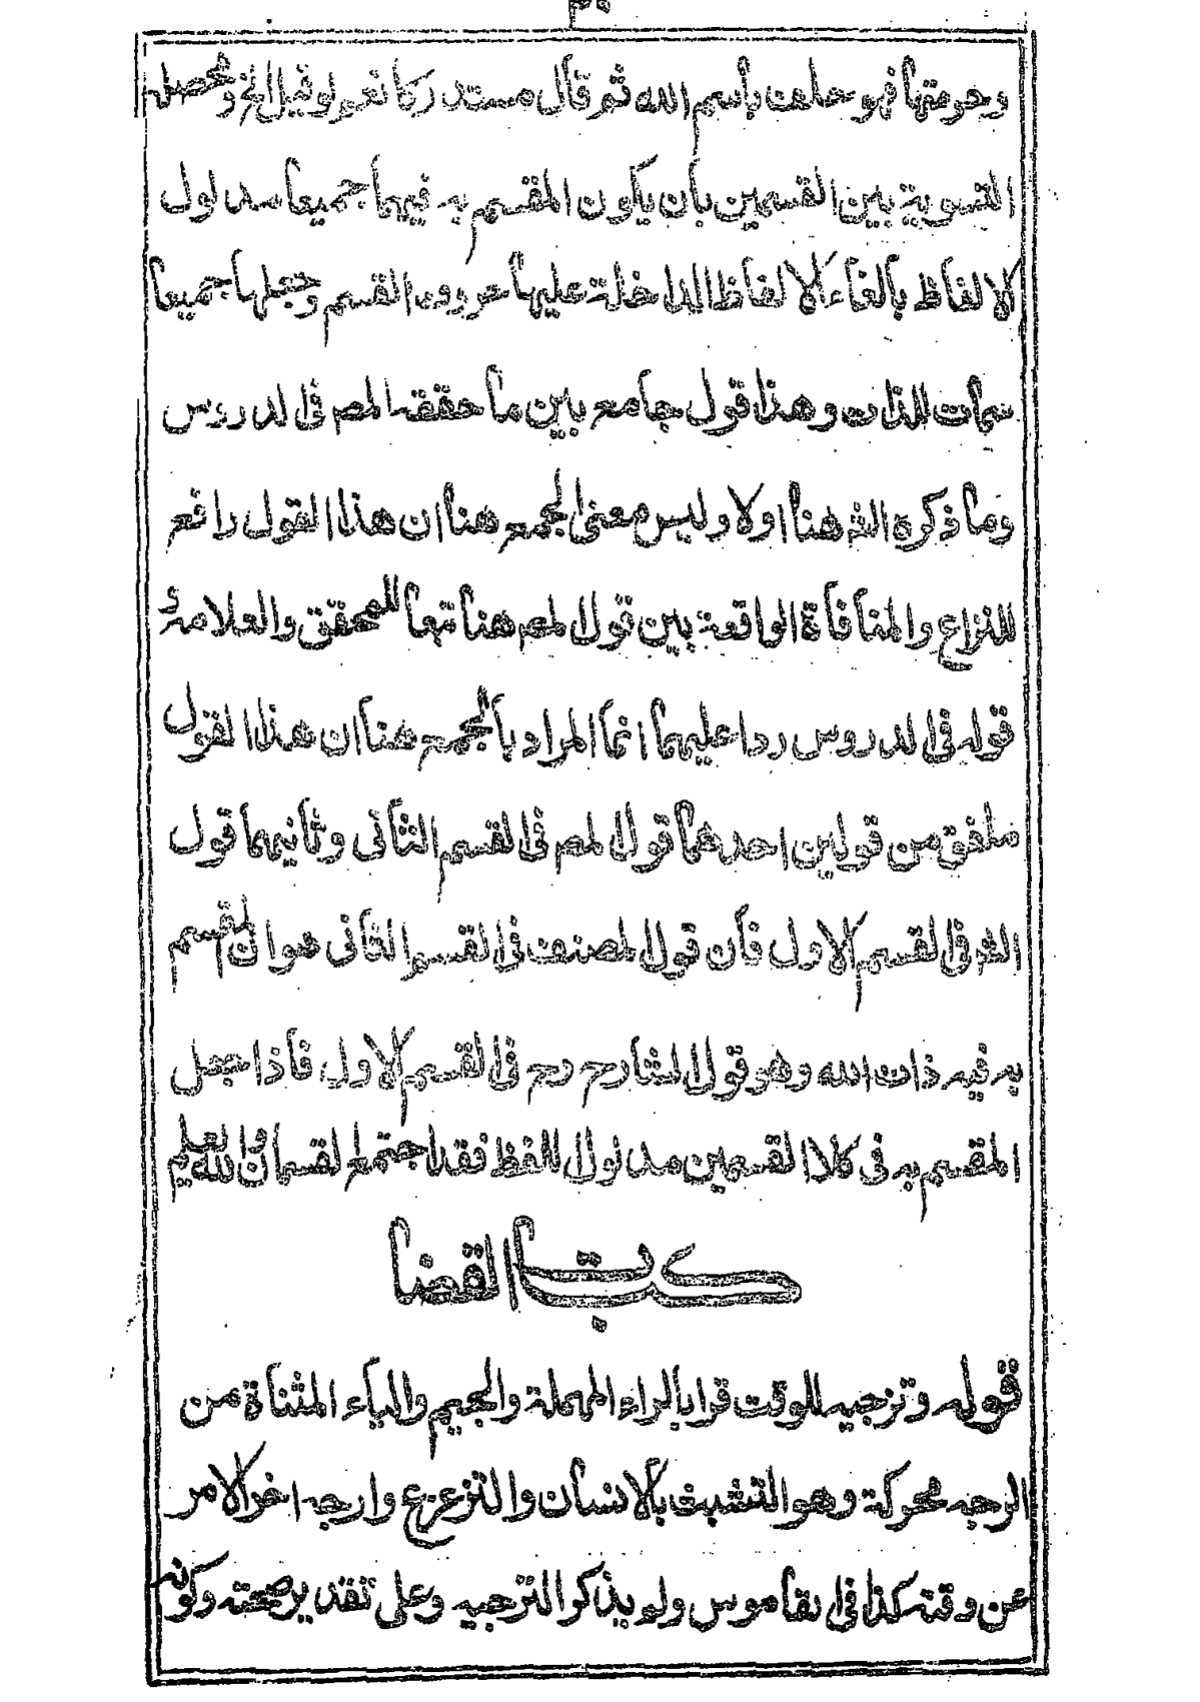 وحرمتها فهو حلف باسم الله ثم قال مستدركا نعم لو قيل الخ ومحصله
التسوية بين القسمين بان يكون المقسم به فيهما جميعا مدلول
الالفاظ بالغاء الالفاظ الداخلة عليها حروف القسم وجعلها جميعا
سمات للذات وهذا قول جامع بين ما حققه المص في الدروس
وما ذكره الش هنا اولا وليس معنى الجمع هنا ان هذا القول رافع
للنزاع والمنافاة الواقعة بين قول المص هنا تبعا للمحقق والعلامة و
قوله في الدروس ردا عليهما انما المراد بالجمع هنا ان هذا القول
ملفق من قولين احدهما قول المص في القسم الثاني وثانيهما قول
الش في القسم الاول فان قول المصنف في القسم الثاني هو ان المقسم
به فيه ذات الله وهو قول الشارح رح في القسم الاول فاذا جعل
المقسم به في كلا القسمين مدلول اللفظ فقد اجتمع القسمان والله العليم
كتاب القضا
قوله وترجيه للوقت قرا بالراء المهملة والجيم والياء المثناة من
الرجه محركة وهو التشبث بالانسان والتزعزع وارجه اخر الامر
عن وقته كذا في القاموس ولم يذكر الترجيه وعلى تقدير صحته وكونه